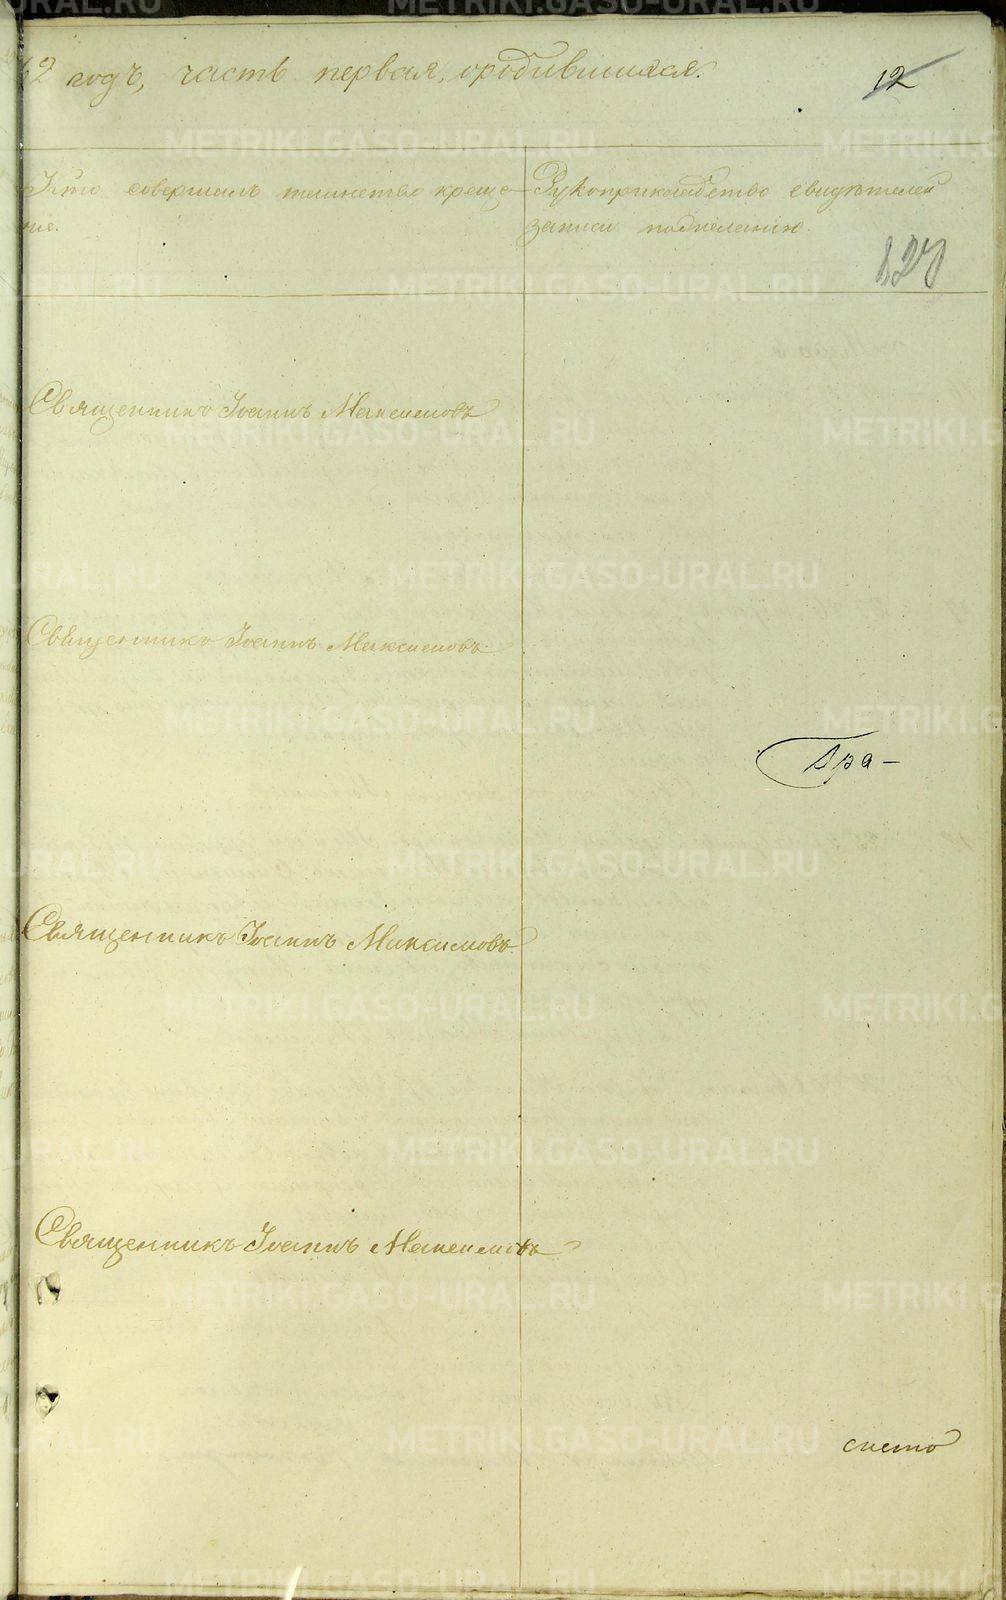 62 годъ, часть первая, о родившихся.
12
Кто совершалъ таинство креще-
ніе.
Рукоприкладство свидѣтелей
записи по желанію.
Священникъ Іоаннъ Максимовъ
Священникъ Іоаннъ Максимовъ
Гра-
Священникъ Іоаннъ Максимовъ
Священникъ Іоаннъ Максимовъ
METRIKI.GASO-URAL.RU